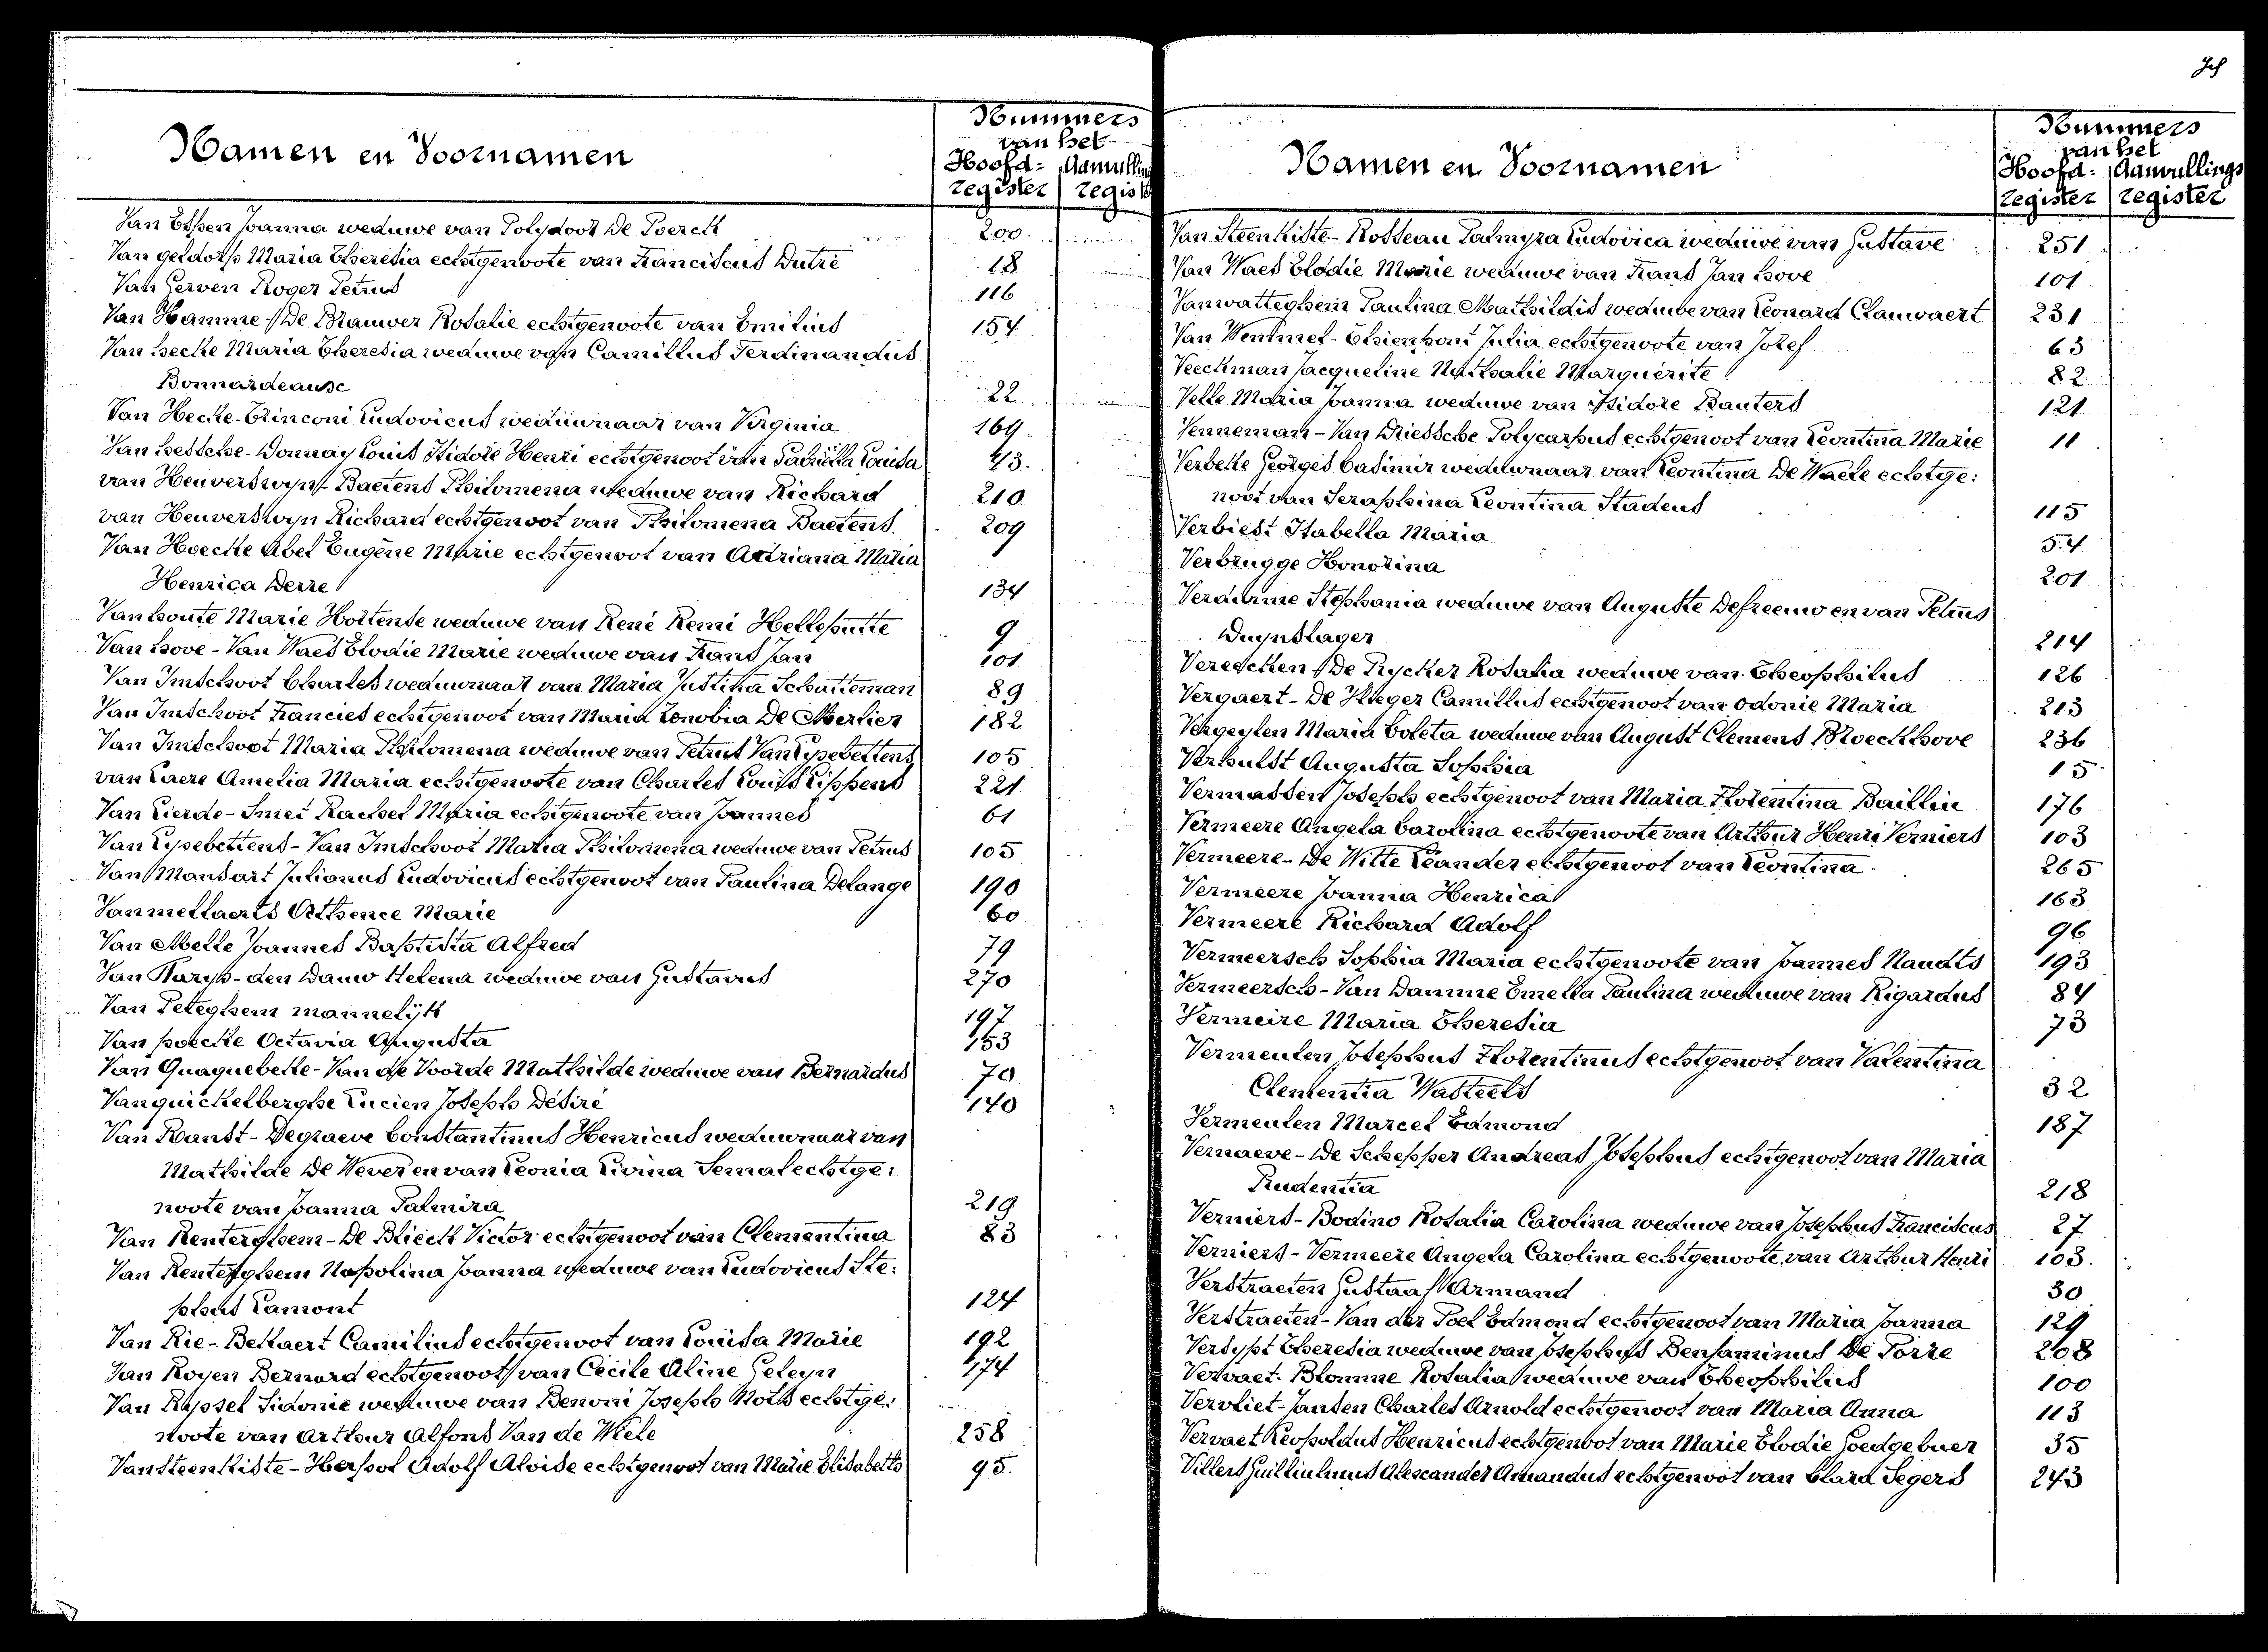 Namen en Voornamen
Nummers
van het
Hoofd- Aanvulling
register register
Van Essen Joanna weduwe van Polydoor De Poerck 200.
Van geldorp Maria Theresia echtgenoote van Franciscus Dutré 18
Van Gerven Roger Petrus 116
Van Hamme / De Brauwer Rosalie echtgenoote van Emilius 154
Van hecke Maria Theresia weduwe van Camillus Ferdinandus
Bonnardeause 22
Van Hecke-Trinconi Ludovicus weduwnaar van Virginia 169
Van hessche-Donnay Louis Isidore Henri echtgenoot van Gabriella Louisa 43.
van Heuverswyn-Baetens Philomena weduwe van Richard 210
van Heuverswyn Richard echtgenoot van Philomena Baetens 209
Van Hoecke Abel Eugène Marie echtgenoot van Adriana Maria
Henrica Derre 134
Van houte Marie Hortense weduwe van René Remi Helleputte 9
Van hove-Van Waes Elodie Marie weduwe van Frans Jan 101
Van Imschoot Charles weduwnaar van Maria Justina Schutteman 89
Van Imschoot Francies echtgenoot van Maria Zenobia De Merlier 182
Van Imschoot Maria Philomena weduwe van Petrus Van Lysebettens 105
van Laere Amelia Maria echtgenoote van Charles Louis Lippens 221
Van Lierde-Smet Rachel Maria echtgenoote van Joannes 61
Van Lysebettens-Van Imschoot Maria Philomena weduwe van Petrus 105
Van Mansart Julianus Ludovicus echtgenoot van Paulina Delange 190
Vanmellaerts Orthence Marie 60
Van Melle Joannes Baptista Alfred 79
Van Parys-den Dauw Helena weduwe van Gustavus 270
Van Peteghem mannelijk 197
Van poecke Octavia Augusta 153
Van Quaquebeke-Van de Voorde Mathilde weduwe van Bernardus 70
Vanquickelberghe Lucien Joseph Désiré 140
Van Ranst-Degraeve Constantinus Henricus weduwnaar van
Mathilde De Wever en van Leonia Livina Semal echtge:
noote van Joanna Palmira 219
Van Renterghem-De Blieck Victor echtgenoot van Clementina 83
Van Renterghem Napolina Joanna weduwe van Ludovicus Ste:
phus Lamont 124
Van Rie-Bekaert Camilius echtgenoot van Louisa Marie 192
Van Royen Bernard echtgenoot van Cécile Aline Geleyn 174
Van Ryssel Sidonie weduwe van Benoni Joseph Noth echtge:
noote van Arthur Alfons Van de Wiele 258
Van Steenkiste-Herpol Adolf Aloise echtgenoot van Marie Elisabeth 95.
Namen en Voornamen
Nummers
van het
Hoofd- Aanvullings
register register
Van Steenkiste-Rotseau Palmyra Ludovica weduwe van Gustave 251
Van Waes Elodie Marie weduwe van Frans Jan hove 101
Vanwatteghem Paulina Mathildis weduwe van Leonard Clauwaert 231
Van Wemmel-Thienpont Julia echtgenoote van Jozef 63
Veeckman Jacqueline Nathalie Marguérite 82
Velle Maria Joanna weduwe van Isidore Bauters 121
Venneman-Van Driessche Polycarpus echtgenoot van Leontina Marie 11
Verbeke Georges Casimir weduwnaar van Leontina De Waele echtge:
noot van Seraphina Leontina Stadeus 115
Verbiest Isabella Maria 54
Verbrugge Honorina 201
Verdurme Stephania weduwe van Auguste Defreeuw en van Petrus
Duynslager 214
Vereecken / De Rycker Rosalia weduwe van Theophilus 126
Vergaert-De Kieger Camillus echtgenoot van Odonie Maria 213
Vergeylen Maria Coleta weduwe van August Clemens Broeckhove 236
Verhulst Augusta Sophia 15
Vermassen Joseph echtgenoot van Maria Florentina Baillin 176
Vermeere Angela Carolina echtgenoote van Arthur Henri Verniers 103
Vermeere-De Witte Leander echtgenoot van Leontina 265
Vermeere Joanna Henrica 163
Vermeere Richard Adolf 96
Vermeersch Sophia Maria echtgenoote van Joannes Naudts 193
Vermeersch-Van Damme Emelia Paulina weduwe van Rigardus 84
Vermeire Maria Theresia 73
Vermeulen Josephus Florentinus echtgenoot van Valentina
Clementia Wasteels 32
Vermeulen Marcel Edmond 187
Vernaeve-De Schepper Andreas Josephus echtgenoot van Maria
Prudentia 218
Verniers-Bodino Rosalia Carolina weduwe van Josephus Franciscus 27
Verniers-Vermeere Angela Carolina echtgenoote van Arthur Henri 103.
Verstraeten Gustaaf Armand 30
Verstraeten-Van der Poel Edmond echtgenoot van Maria Joanna 129
Versypt Theresia weduwe van Josephus Benjaminus De Porre 268
Vervaet-Blomme Rosalia weduwe van Theophilus 100
Vervliet-Jansen Charles Arnold echtgenoot van Maria Anna 113
Vervaet Leopoldus Henricus echtgenoot van Marie Elodie Goedgebuer 35
Villers Guillielmus Alexander Amandus echtgenoot van Clara Segers 243